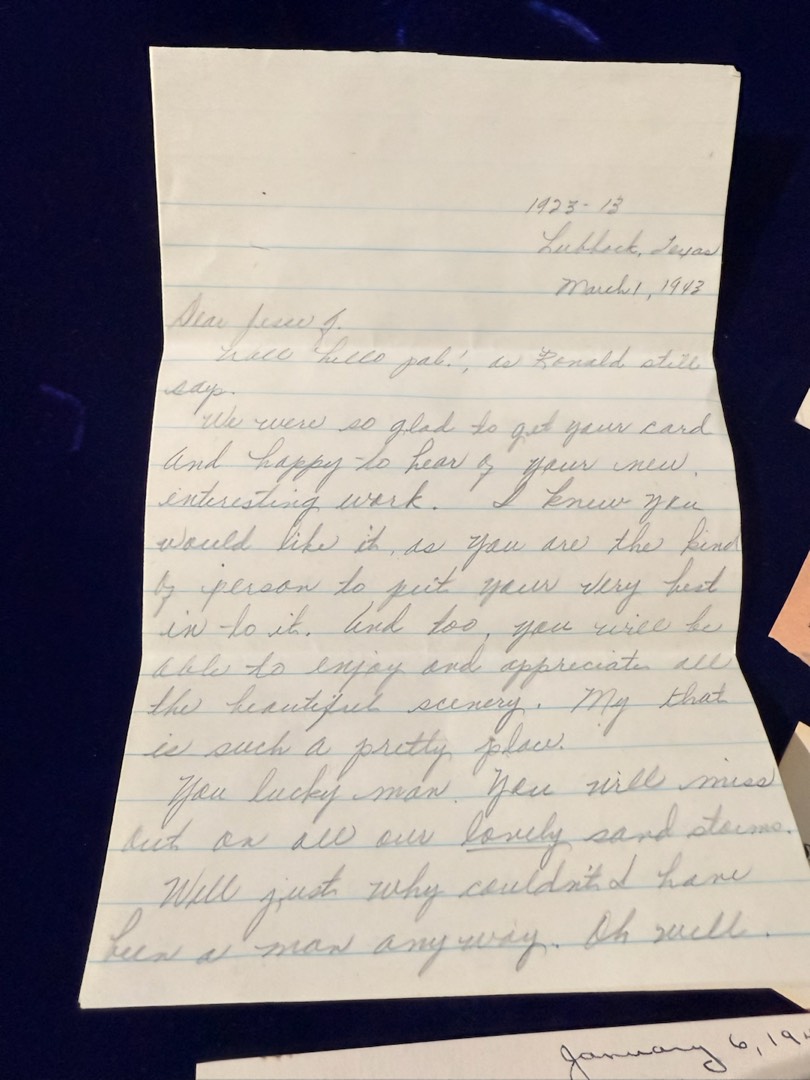 1923-13
Lubbock, Texas
March 1, 1943
Dear Jesse J.
Well "hello pal!", as Ronald still
say.
We were so glad to get your card
and happy to hear of your new
interesting work. I knew you
would like it, as you are the kind
of person to put your very best
in to it. And too, you will be
able to enjoy and appreciate all
the beautiful scenery. My that
is such a pretty place.
You lucky man. You will miss
out on all our lovely sand storms.
Well just why couldn't I have
been a man anyway. Oh well.
January 6, 194